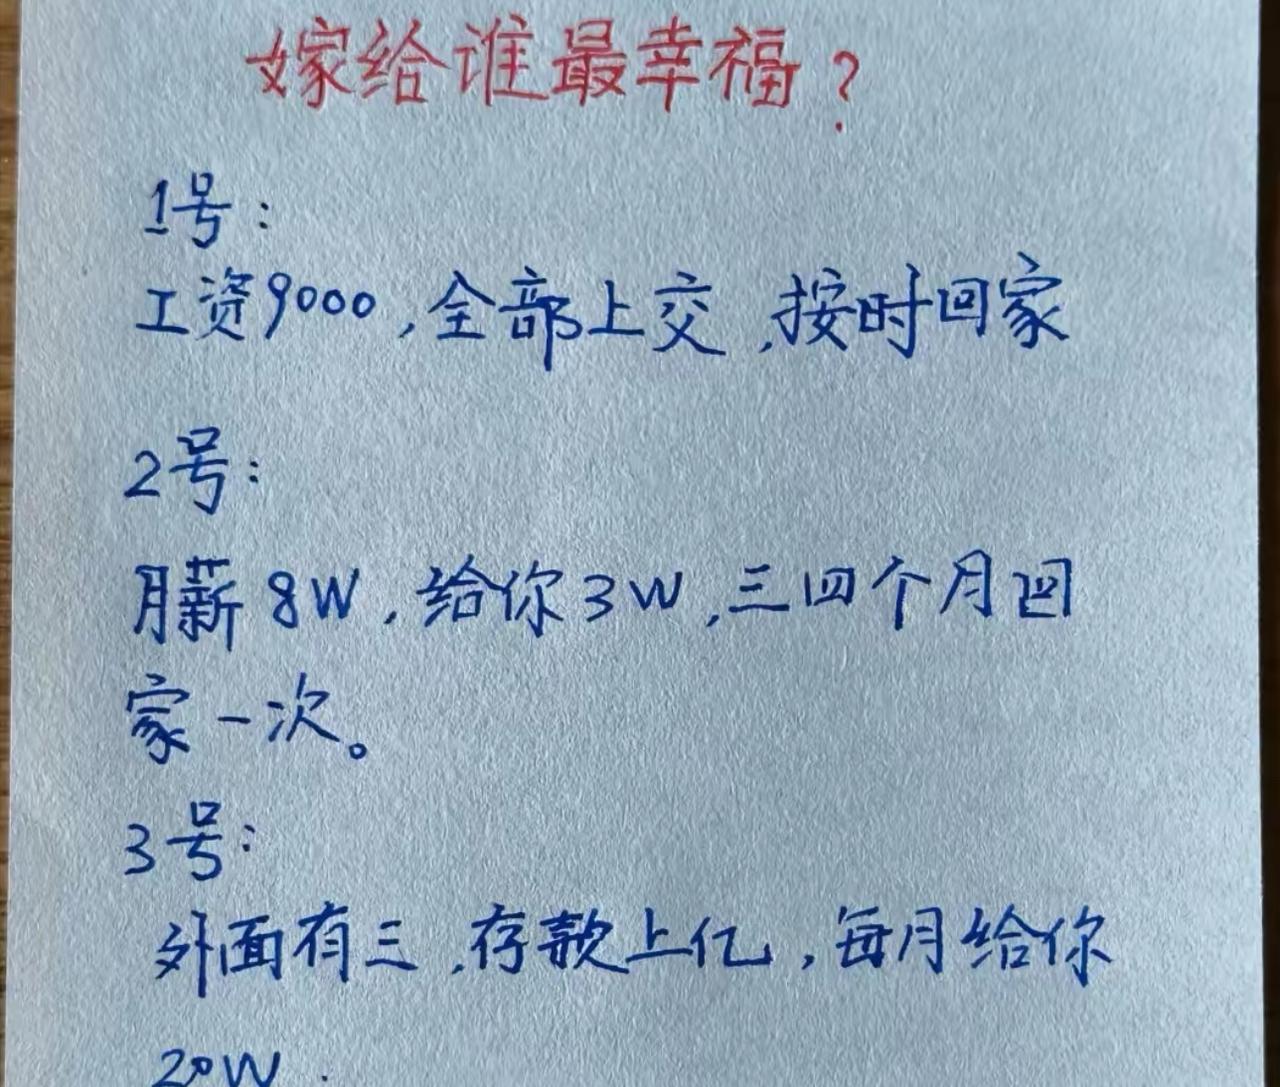 嫁给谁最幸福?
1号:
工资9000,全部上交,按时回家
2号:
月薪8W,给你3W,三四个月回
家一次。
3号:
外面有三,存款上亿,每月给你
20W.